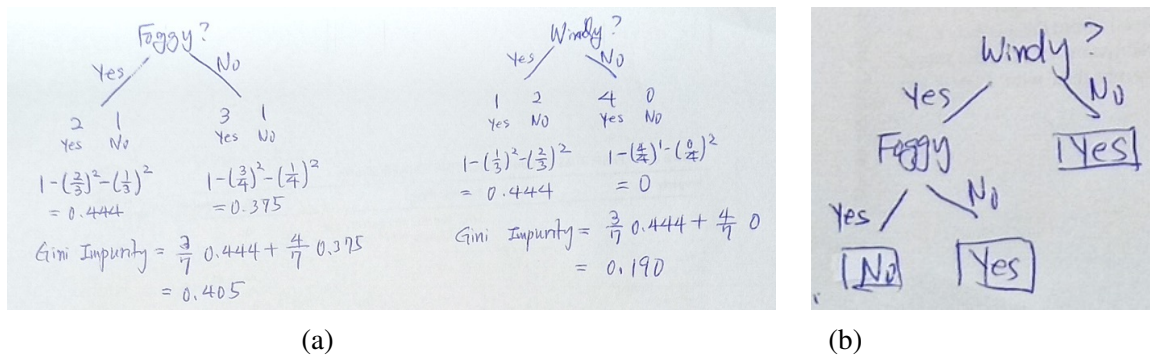 Foggy?
Yes No
2 1 3 1
Yes No Yes No
1-(2/3)²-(1/3)² 1-(3/4)²-(1/4)²
= 0.444 = 0.375
Gini Impurity = 3/7 0.444 + 4/7 0.375
= 0.405
Windy?
Yes No
1 2 4 0
Yes No Yes No
1-(1/3)²-(2/3)² 1-(4/4)¹-(0/4)²
= 0.444 = 0
Gini Impurity = 3/7 0.444 + 4/7 0
= 0.190
(a)
Windy?
Yes No
Foggy Yes
Yes No
No Yes
(b)